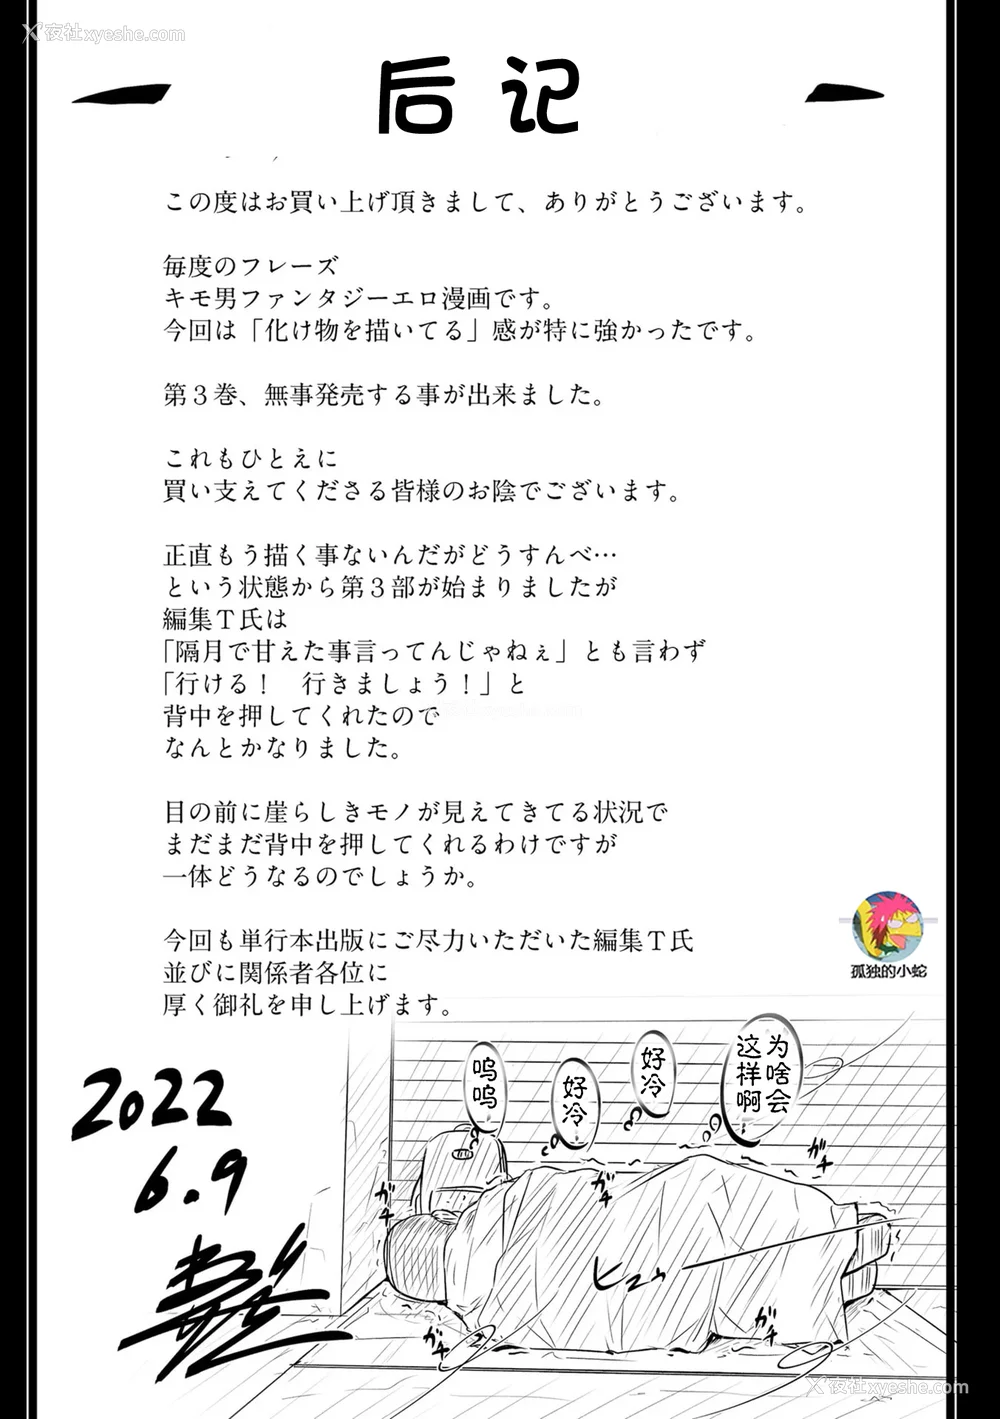 夜社xyeshe.com
后记
この度はお買い上げ頂きまして、ありがとうございます。
毎度のフレーズ
キモ男ファンタジーエロ漫画です。
今回は「化け物を描いてる」感が特に強かったです。
第３巻、無事発売する事が出来ました。
これもひとえに
買い支えてくださる皆様のお陰でございます。
正直もう描く事ないんだがどうすんべ…
という状態から第３部が始まりましたが
編集Ｔ氏は
「隔月で甘えた事言ってんじゃねぇ」とも言わず
「行ける！　行きましょう！」と
背中を押してくれたので
なんとかなりました。
目の前に崖らしきモノが見えてきてる状況で
まだまだ背中を押してくれるわけですが
一体どうなるのでしょうか。
今回も単行本出版にご尽力いただいた編集Ｔ氏
並びに関係者各位に
厚く御礼を申し上げます。
孤独的小蛇
为啥会
这样啊
好冷
好冷
呜呜
ガチ
ガチ
ガチ
ヒュゥ
ガチ
ガチ
2022
6.9
夜社xyeshe.com